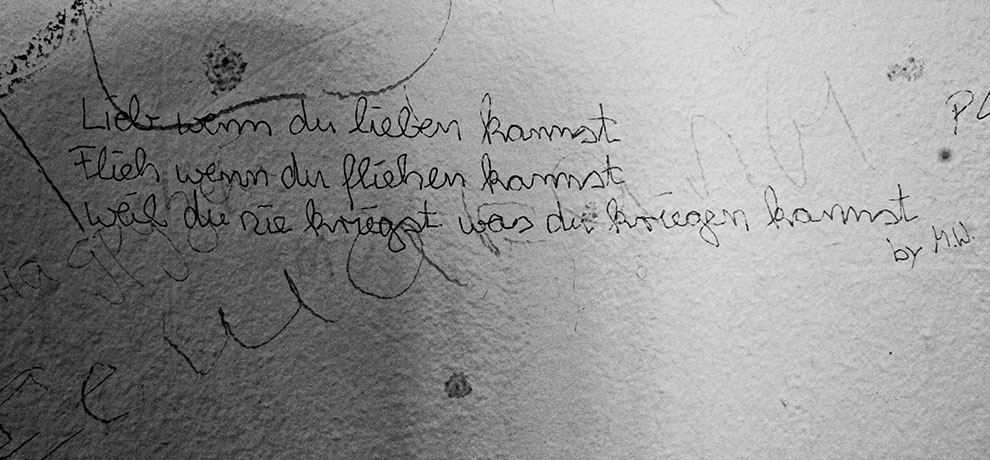 Lieb wenn du lieben kannst
Flieh wenn du fliehen kannst
weil du nie kriegst was du kriegen kannst
by M.W.